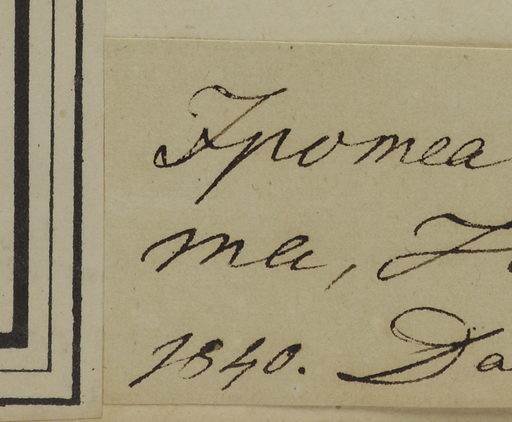 Ipomea
ma,
1840. Da